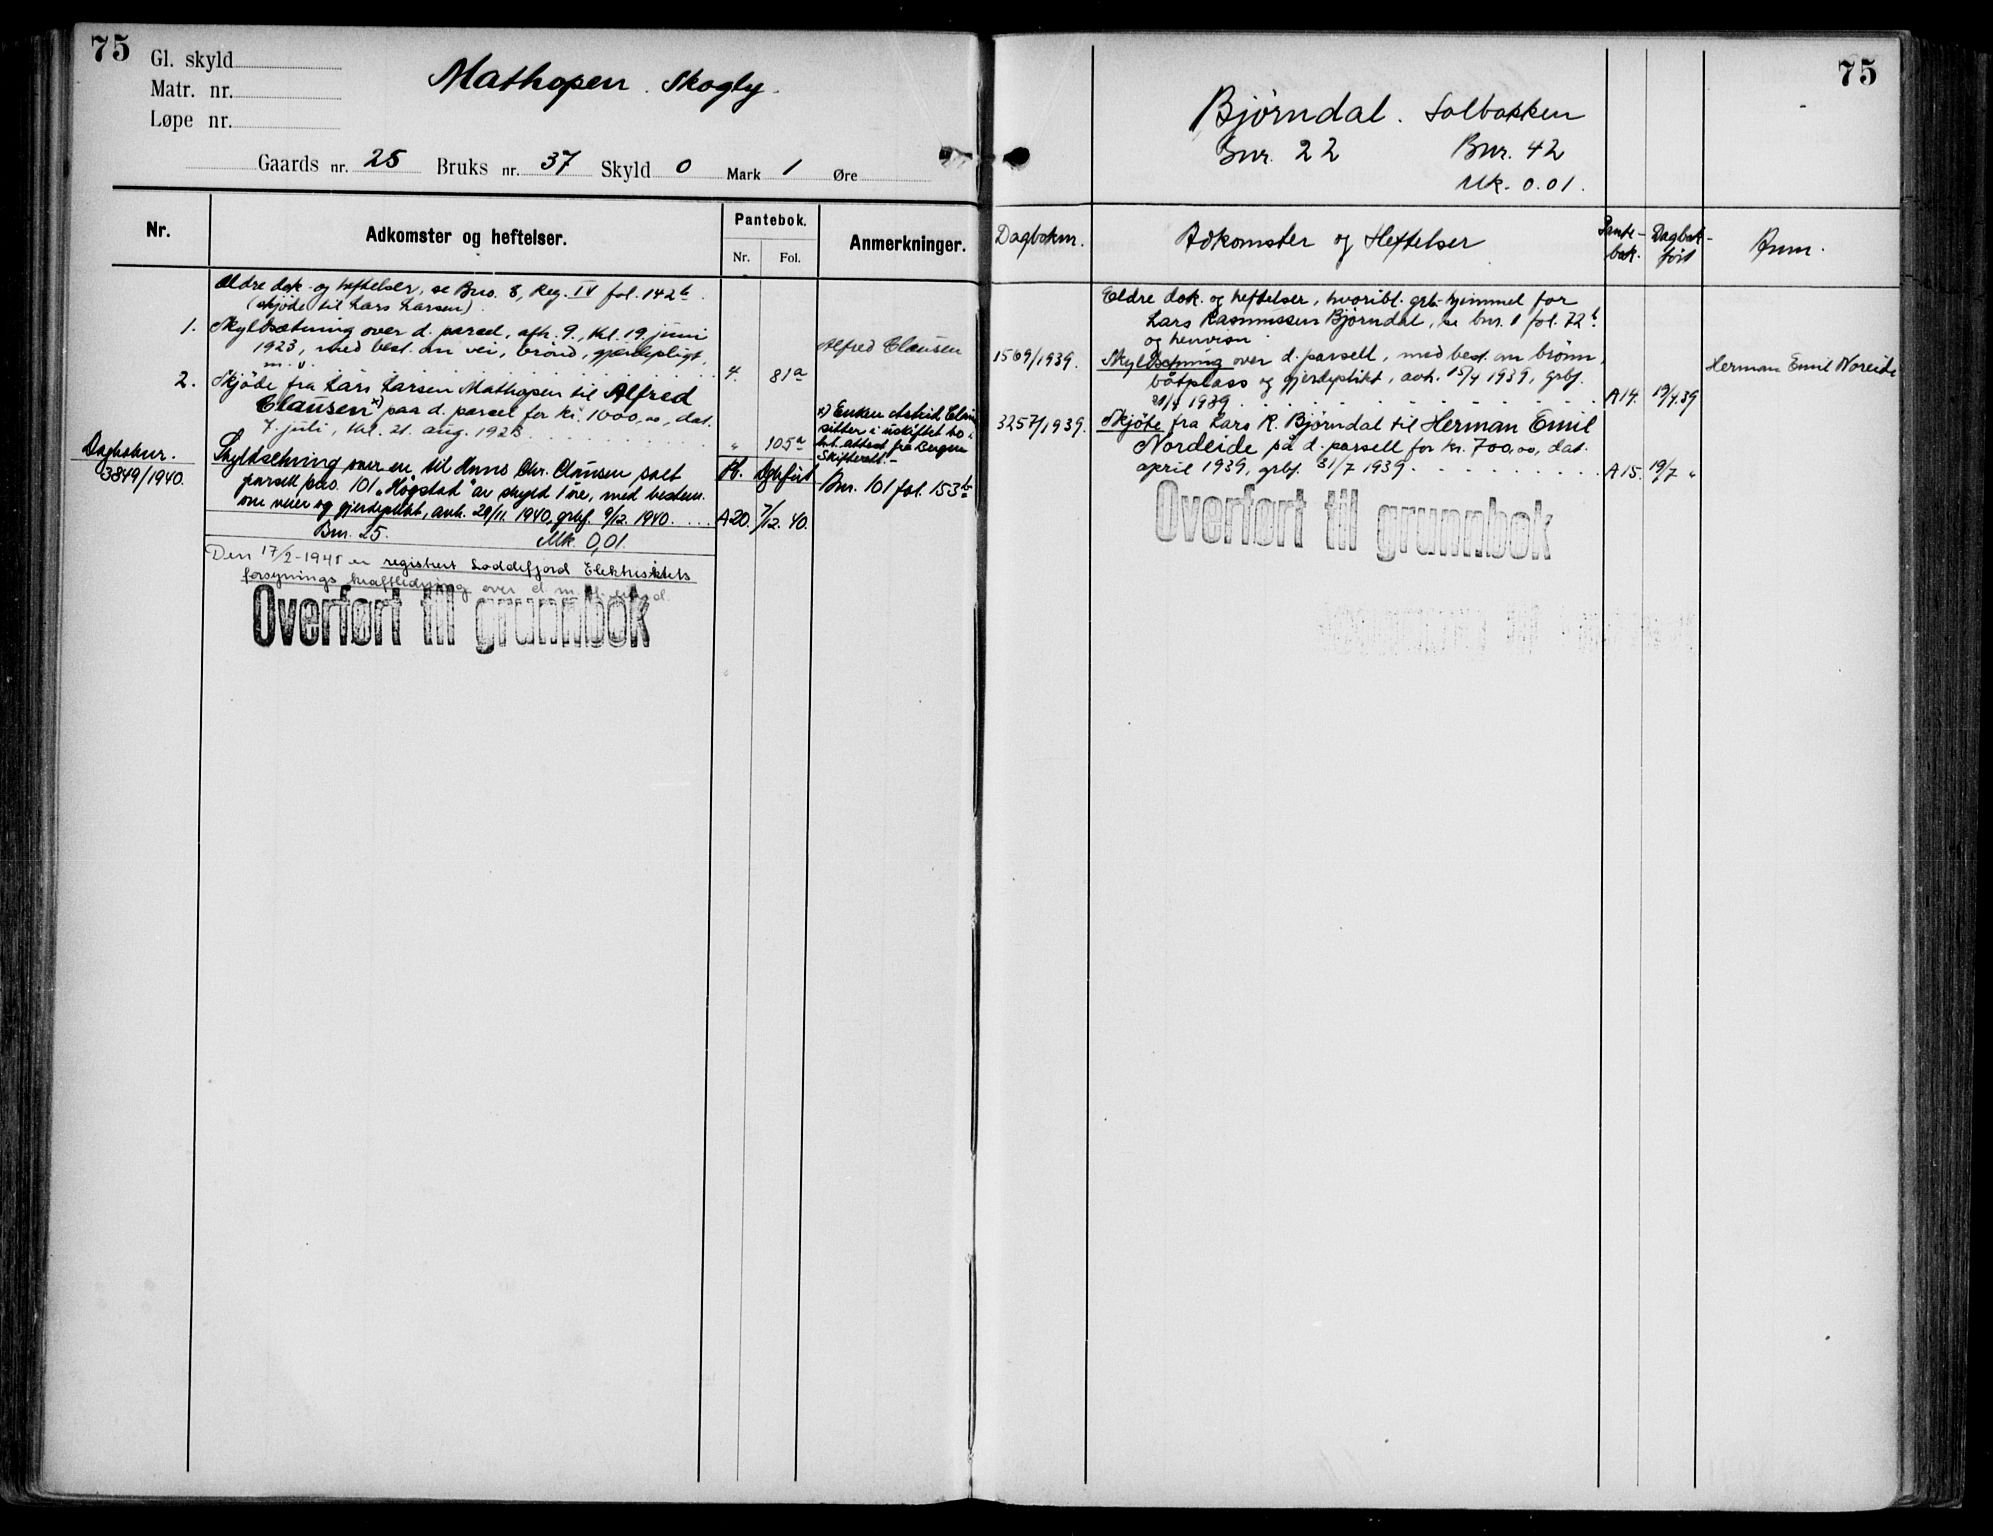 75
Gl. skyld
Matr. nr.
Løpe nr.
Mathopen. Skogly.
Gaards nr. 25 Bruks nr. 37 Skyld 0 Mark 1 Øre
Nr. Adkomster og heftelser. Pantebok. Nr. Fol. Anmerkninger.
Ældre dok. og heftelser, se Bno. 8, Reg. IV fol. 142b.
(skjøde til Lars Larsen).
1. Skyldsætning over d. parcel, afh. 9., tkl. 19. juni
1923, med best. om vei, brønd, gjerdepligt,
m. v. 4. 81a Alfred Clausen
2. Skjøde fra Lars Larsen Mathopen til Alfred
Clausen x) paa d. parcel for kr. 1000,00, dat.
7. juli, tkl. 21. aug. 1923 " 105a
x) Enken Astrid
sitter i uskiftet bo
attest fra Bergen
Skifterett.-
Dagboknr.
3849/1940.
Skyldsetning over en til Hans Chr. Clausen solt
parsell bno. 101 „Høgstad" av skyld 1 øre, med bestem.
om veier og gjerdeplikt, avh. 29/11. 1940, grbf. 9/12. 1940.
Pt. Dgbført
A20. 7/12. 40.
Bnr. 101 fol. 153b
Bnr. 25. Mk. 0,01.
Den 17/2-1945 er registrert Loddefjord Elektrisitets
forsynings kraftledning over d. m. fl.
Overført til grunnbok
75
Bjørndal. Solbakken
Gnr. 22 Bnr. 42
Mk. 0.01.
Dagboknr. Adkomster og Heftelser Pante-bok. Dagbok-ført Anm.
Eldre dok. og heftelser, hvoribl. grb. hjemmel for
Lars Rasmussen Bjørndal, se bnr. 1 fol. 72b
og henvisn.
1569/1939. Skyldsetning over d. parsell, med best. om brønn,
båtplass og gjerdeplikt, avh. 15/4 1939, grbf.
21/4 1939 A14. 19/4.39 Herman Emil Noreide
3257/1939. Skjøte fra Lars R. Bjørndal til Herman Emil
Nordeide på d. parsell for kr. 700,00, dat.
april 1939, grbf. 31/7 1939. A15. 19/7 "
Overført til grunnbok